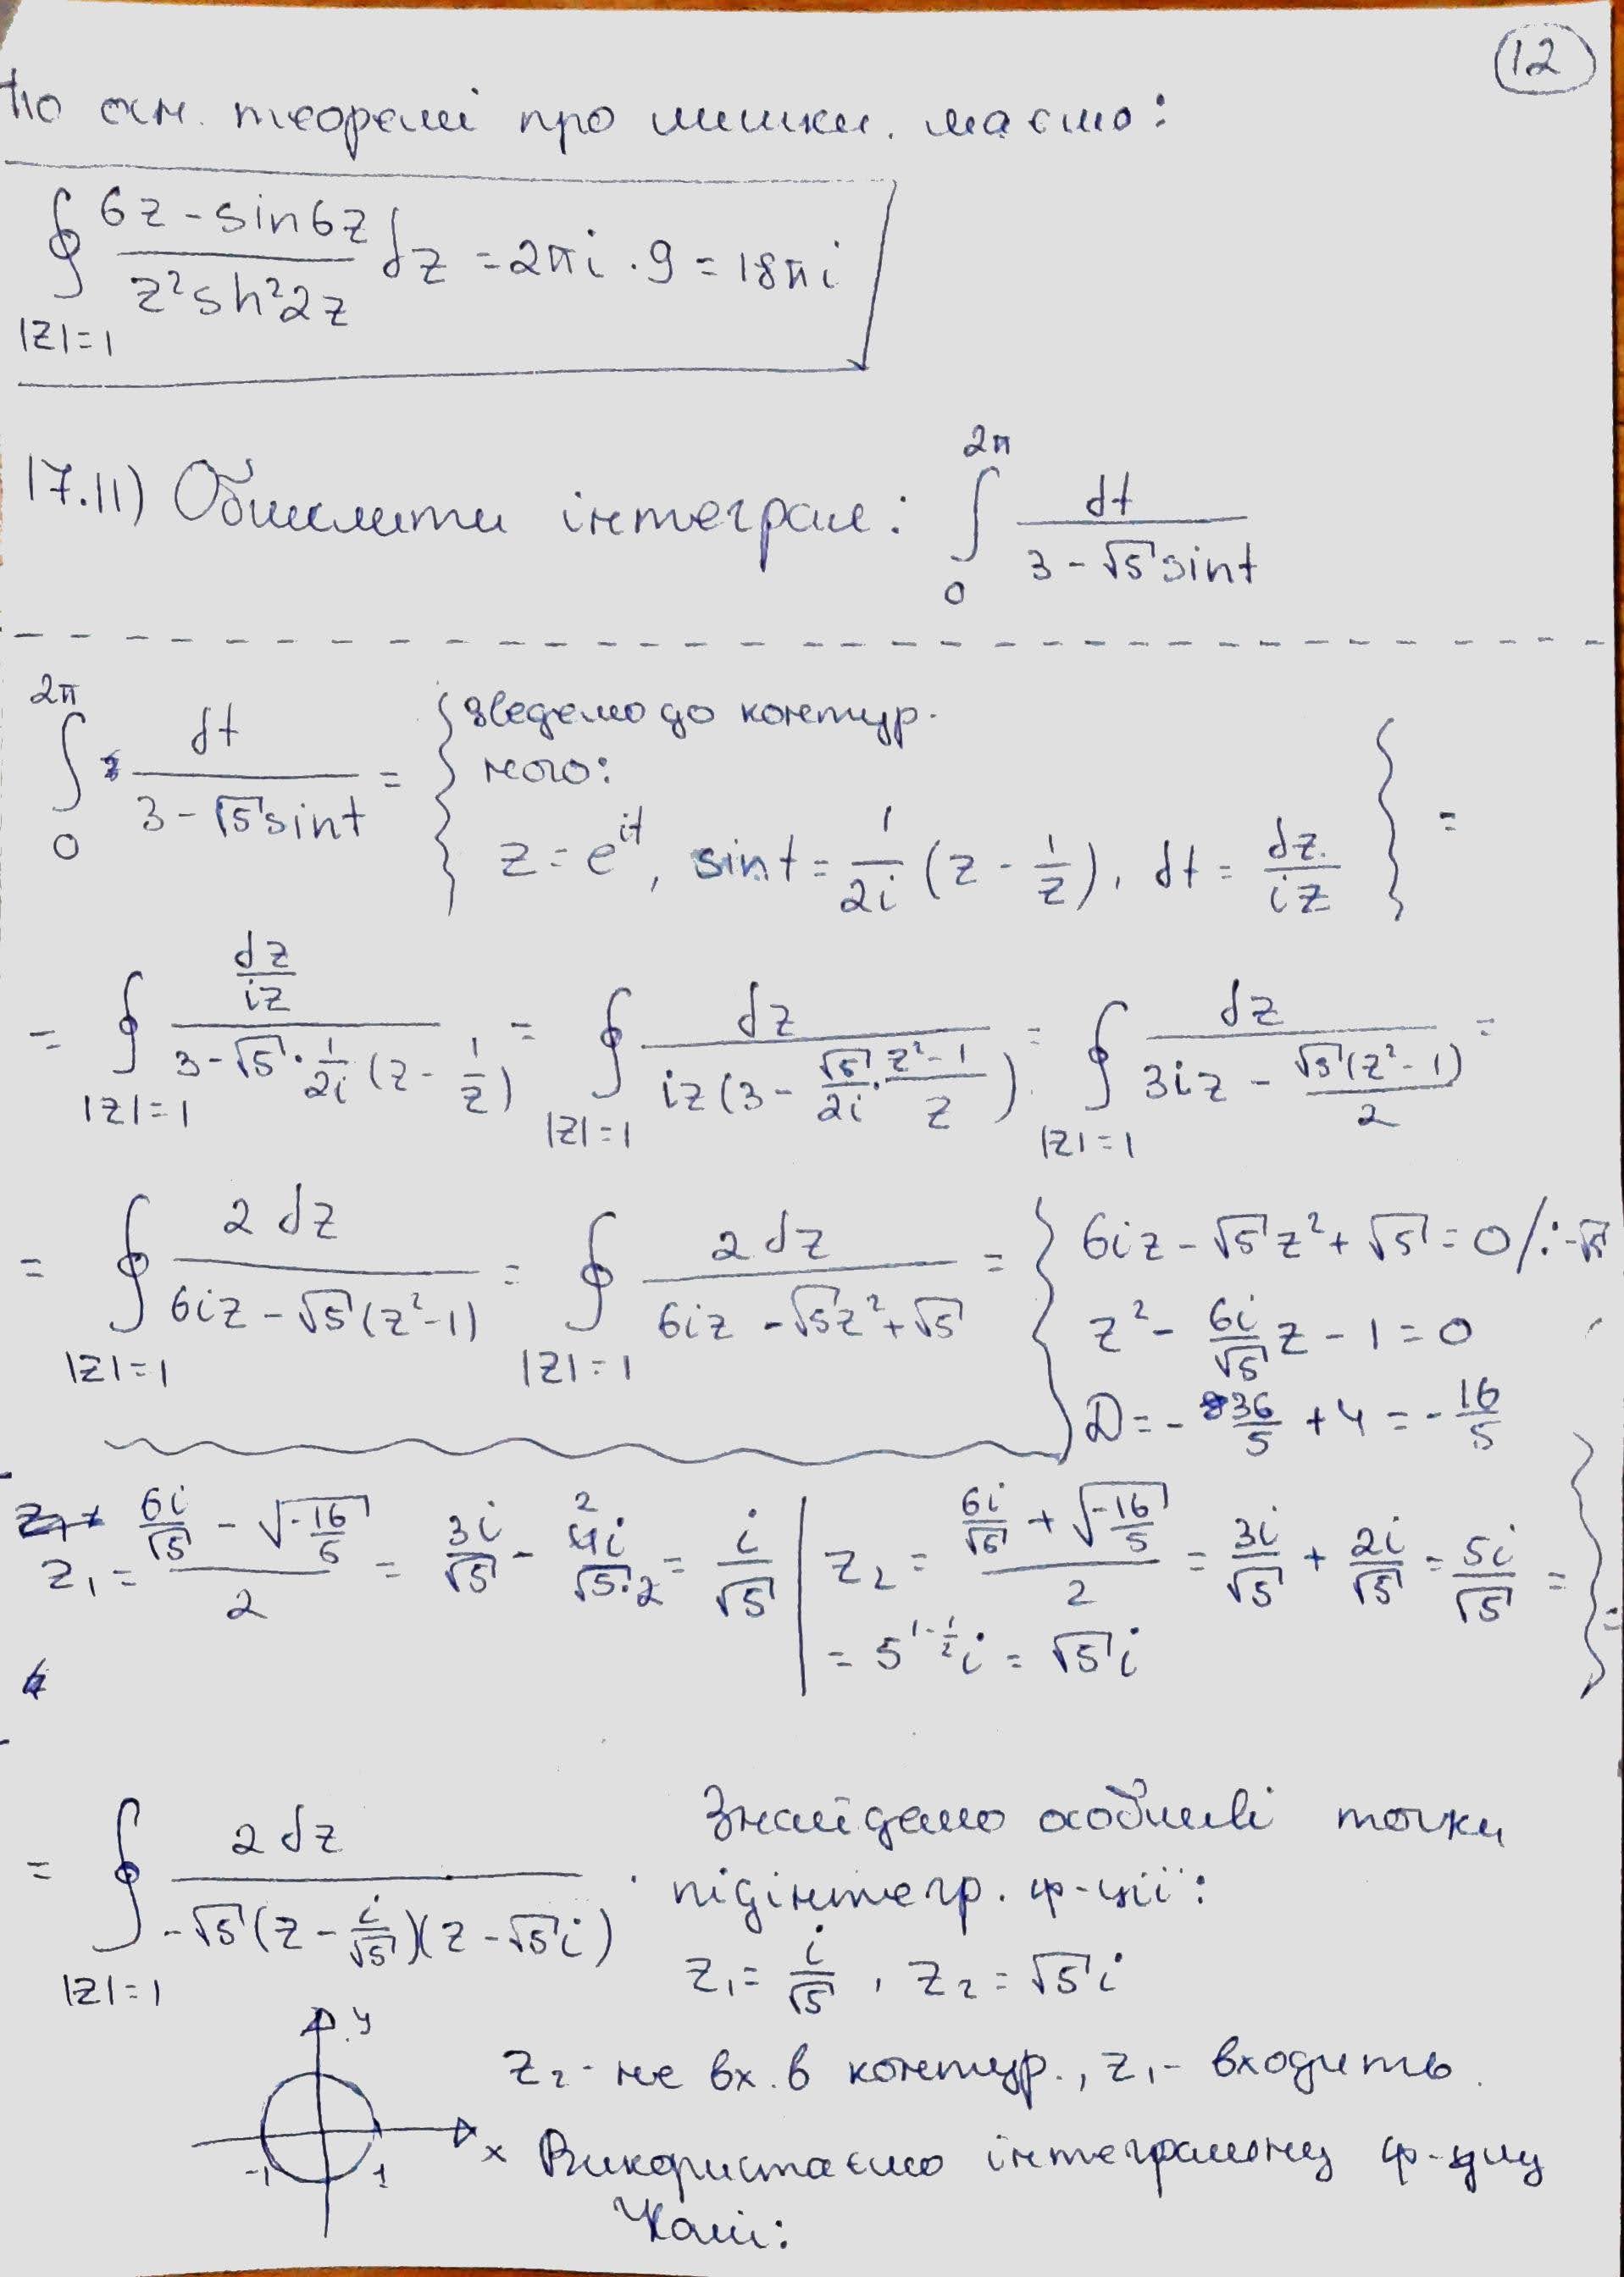 12
По осн. теоремі про лишки. маємо:
∮_{|z|=1} (6z - sin6z)/(z² sh²2z) dz = 2πi · 9 = 18πi
17.11) Обчислити інтеграл: ∫_0^{2π} dt/(3 - √5 sint)
∫_0^{2π} dt/(3 - √5 sint) = { зведемо до контур.
ного:
z = e^{it}, sint = 1/(2i) (z - 1/z), dt = dz/(iz) } =
= ∮_{|z|=1} (dz/(iz))/(3 - √5 · 1/(2i) (z - 1/z)) = ∮_{|z|=1} dz/(iz(3 - √5/(2i) · (z² - 1)/z)) = ∮_{|z|=1} dz/(3iz - √5(z² - 1)/2) =
= ∮_{|z|=1} 2dz/(6iz - √5(z² - 1)) = ∮_{|z|=1} 2dz/(6iz - √5z² + √5) = { 6iz - √5z² + √5 = 0 /: -√5
z² - 6i/√5 z - 1 = 0
D = - 36/5 + 4 = - 16/5
z₁ = (6i/√5 - √(-16/5))/2 = 3i/√5 - 4i/(√5·2) = i/√5 | z₂ = (6i/√5 + √(-16/5))/2 = 3i/√5 + 2i/√5 = 5i/√5 =
= 5^{1-1/2} i = √5 i } =
= ∮_{|z|=1} 2dz/(-√5(z - i/√5)(z - √5i)) . Знайдемо особливі точки
підінтегр. ф-ції:
z₁ = i/√5 , z₂ = √5 i
y
z₂ - не вх. в контур., z₁ - входить.
-1 1 x
Використаємо інтегральну ф-лу
Коші: